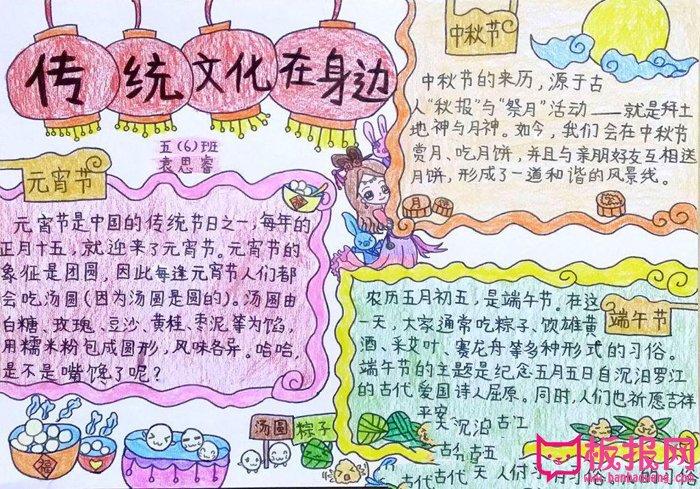 传统文化在身边
五(6)班
袁思睿
元宵节
元宵节是中国的传统节日之一,每年的
正月十五,就迎来了元宵节。元宵节的
象征是团圆,因此每逢元宵节人们都
会吃汤圆(因为汤圆是圆的)。汤圆由
白糖、玫瑰、豆沙、黄桂、枣泥等为馅,
用糯米粉包成圆形,风味各异。哈哈,
是不是嘴馋了呢?
福
汤圆
粽子
中秋节
中秋节的来历,源于古
人“秋报”与“祭月”活动——就是拜土
地神与月神。如今,我们会在中秋节
赏月、吃月饼,并且与亲朋好友互相送
月饼,形成了一道和谐的风景线。
月
端午节
农历五月初五,是端午节。在这
一天,大家通常吃粽子、饮雄黄
酒、采艾叶、赛龙舟等多种形式的习俗。
端午节的主题是纪念五月五日自沉汨罗江
的古代爱国诗人屈原。同时,人们也祈愿吉祥
平安
天沉汨古江
古午古五
古代古代天人们习习俗俗的俗
板报网
www.banbaowang.com